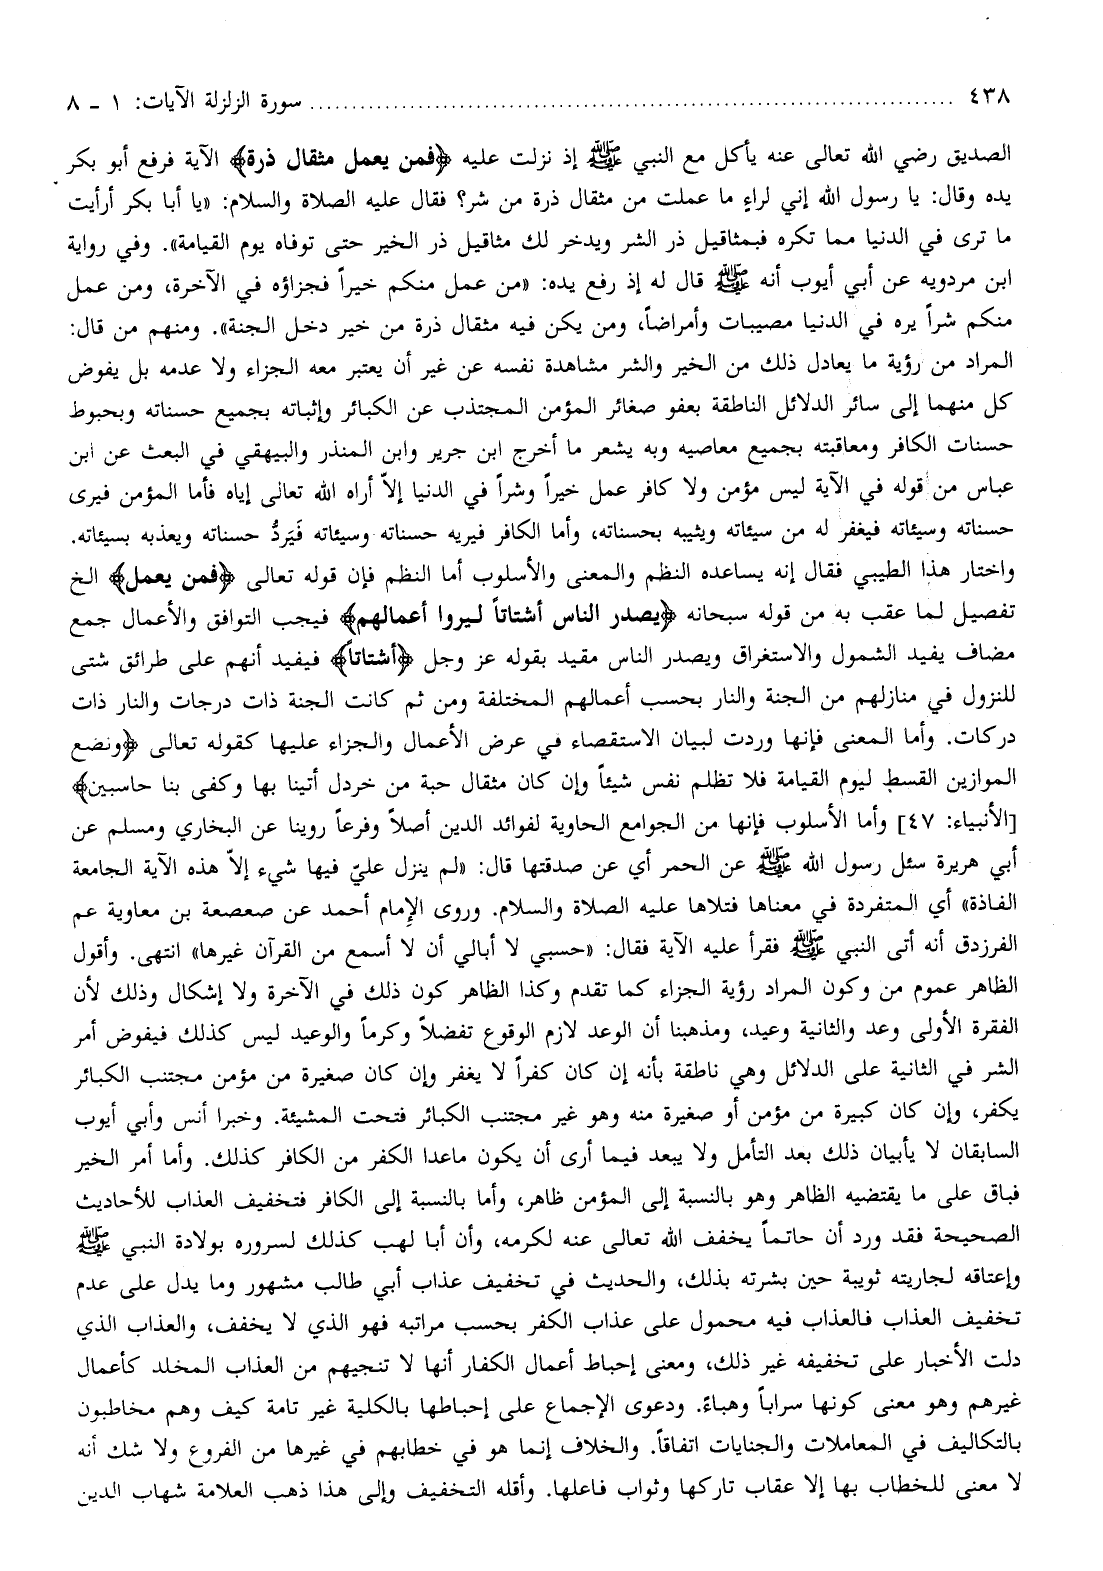 ٤٣٨ ........................................ سورة الزلزلة الآيات: ١ - ٨
الصديق رضي الله تعالى عنه يأكل مع النبي ﷺ إذ نزلت عليه ﴿فمن يعمل مثقال ذرة﴾ الآية فرفع أبو بكر
يده وقال: يا رسول الله إني لراءٍ ما عملت من مثقال ذرة من شر؟ فقال عليه الصلاة والسلام: «يا أبا بكر أرأيت
ما ترى في الدنيا مما تكره فبمثاقيل ذر الشر ويدخر لك مثاقيل ذر الخير حتى توفاه يوم القيامة». وفي رواية
ابن مردويه عن أبي أيوب أنه ﷺ قال له إذ رفع يده: «من عمل منكم خيراً فجزاؤه في الآخرة، ومن عمل
منكم شراً يره في الدنيا مصيبات وأمراضاً، ومن يكن فيه مثقال ذرة من خير دخل الجنة». ومنهم من قال:
المراد من رؤية ما يعادل ذلك من الخير والشر مشاهدة نفسه عن غير أن يعتبر معه الجزاء ولا عدمه بل يفوض
كل منهما إلى سائر الدلائل الناطقة بعفو صغائر المؤمن المجتذب عن الكبائر وإثباته بجميع حسناته وبحبوط
حسنات الكافر ومعاقبته بجميع معاصيه وبه يشعر ما أخرج ابن جرير وابن المنذر والبيهقي في البعث عن ابن
عباس من قوله في الآية ليس مؤمن ولا كافر عمل خيراً وشراً في الدنيا إلاّ أراه الله تعالى إياه فأما المؤمن فيرى
حسناته وسيئاته فيغفر له من سيئاته ويثيبه بحسناته، وأما الكافر فيريه حسناته وسيئاته فَيَردُّ حسناته ويعذبه بسيئاته.
واختار هذا الطيبي فقال إنه يساعده النظم والمعنى والأسلوب أما النظم فإن قوله تعالى ﴿فمن يعمل﴾ الخ
تفصيل لما عقب به من قوله سبحانه ﴿يصدر الناس أشتاتاً ليروا أعمالهم﴾ فيجب التوافق والأعمال جمع
مضاف يفيد الشمول والاستغراق ويصدر الناس مقيد بقوله عز وجل ﴿أشتاتاً﴾ فيفيد أنهم على طرائق شتى
للنزول في منازلهم من الجنة والنار بحسب أعمالهم المختلفة ومن ثم كانت الجنة ذات درجات والنار ذات
دركات. وأما المعنى فإنها وردت لبيان الاستقصاء في عرض الأعمال والجزاء عليها كقوله تعالى ﴿ونضع
الموازين القسط ليوم القيامة فلا تظلم نفس شيئاً وإن كان مثقال حبة من خردل أتينا بها وكفى بنا حاسبين﴾
[الأنبياء: ٤٧] وأما الأسلوب فإنها من الجوامع الحاوية لفوائد الدين أصلاً وفرعاً روينا عن البخاري ومسلم عن
أبي هريرة سئل رسول الله ﷺ عن الحمر أي عن صدقتها قال: «لم ينزل عليّ فيها شيء إلاّ هذه الآية الجامعة
الفاذة» أي المتفردة في معناها فتلاها عليه الصلاة والسلام. وروى الإمام أحمد عن صعصعة بن معاوية عم
الفرزدق أنه أتى النبي ﷺ فقرأ عليه الآية فقال: «حسبي لا أبالي أن لا أسمع من القرآن غيرها» انتهى. وأقول
الظاهر عموم من وكون المراد رؤية الجزاء كما تقدم وكذا الظاهر كون ذلك في الآخرة ولا إشكال وذلك لأن
الفقرة الأولى وعد والثانية وعيد، ومذهبنا أن الوعد لازم الوقوع تفضلاً وكرماً والوعيد ليس كذلك فيفوض أمر
الشر في الثانية على الدلائل وهي ناطقة بأنه إن كان كفراً لا يغفر وإن كان صغيرة من مؤمن مجتنب الكبائر
يكفر، وإن كان كبيرة من مؤمن أو صغيرة منه وهو غير مجتنب الكبائر فتحت المشيئة. وخبرا أنس وأبي أيوب
السابقان لا يأبيان ذلك بعد التأمل ولا يبعد فيما أرى أن يكون ماعدا الكفر من الكافر كذلك. وأما أمر الخير
فباق على ما يقتضيه الظاهر وهو بالنسبة إلى المؤمن ظاهر، وأما بالنسبة إلى الكافر فتخفيف العذاب للأحاديث
الصحيحة فقد ورد أن حاتماً يخفف الله تعالى عنه لكرمه، وأن أبا لهب كذلك لسروره بولادة النبي ﷺ
وإعتاقه لجاريته ثويبة حين بشرته بذلك، والحديث في تخفيف عذاب أبي طالب مشهور وما يدل على عدم
تخفيف العذاب فالعذاب فيه محمول على عذاب الكفر بحسب مراتبه فهو الذي لا يخفف، والعذاب الذي
دلت الأخبار على تخفيفه غير ذلك، ومعنى إحباط أعمال الكفار أنها لا تنجيهم من العذاب المخلد كأعمال
غيرهم وهو معنى كونها سراباً وهباءً. ودعوى الإجماع على إحباطها بالكلية غير تامة كيف وهم مخاطبون
بالتكاليف في المعاملات والجنايات اتفاقاً. والخلاف إنما هو في خطابهم في غيرها من الفروع ولا شك أنه
لا معنى للخطاب بها إلا عقاب تاركها وثواب فاعلها. وأقله التخفيف وإلى هذا ذهب العلامة شهاب الدين